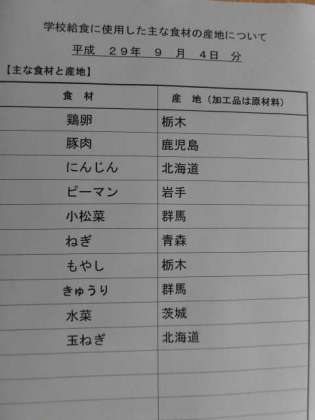 学校給食に使用した主な食材の産地について
平成 29年 9 月 4日 分
【主な食材と産地】
食 材 産 地(加工品は原材料)
鶏卵 栃木
豚肉 鹿児島
にんじん 北海道
ピーマン 岩手
小松菜 群馬
ねぎ 青森
もやし 栃木
きゅうり 群馬
水菜 茨城
玉ねぎ 北海道